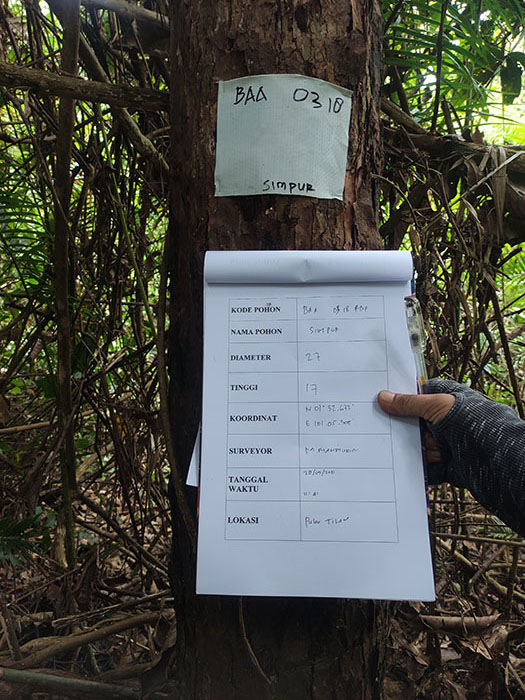 BAA 0318
SIMPUR
KODE POHON BAA 0318
NAMA POHON SIMPUR
DIAMETER 27
TINGGI 17
KOORDINAT N 01° 52.
E 101. 05.
SURVEYOR M
TANGGAL
WAKTU
LOKASI Pulau Tilan